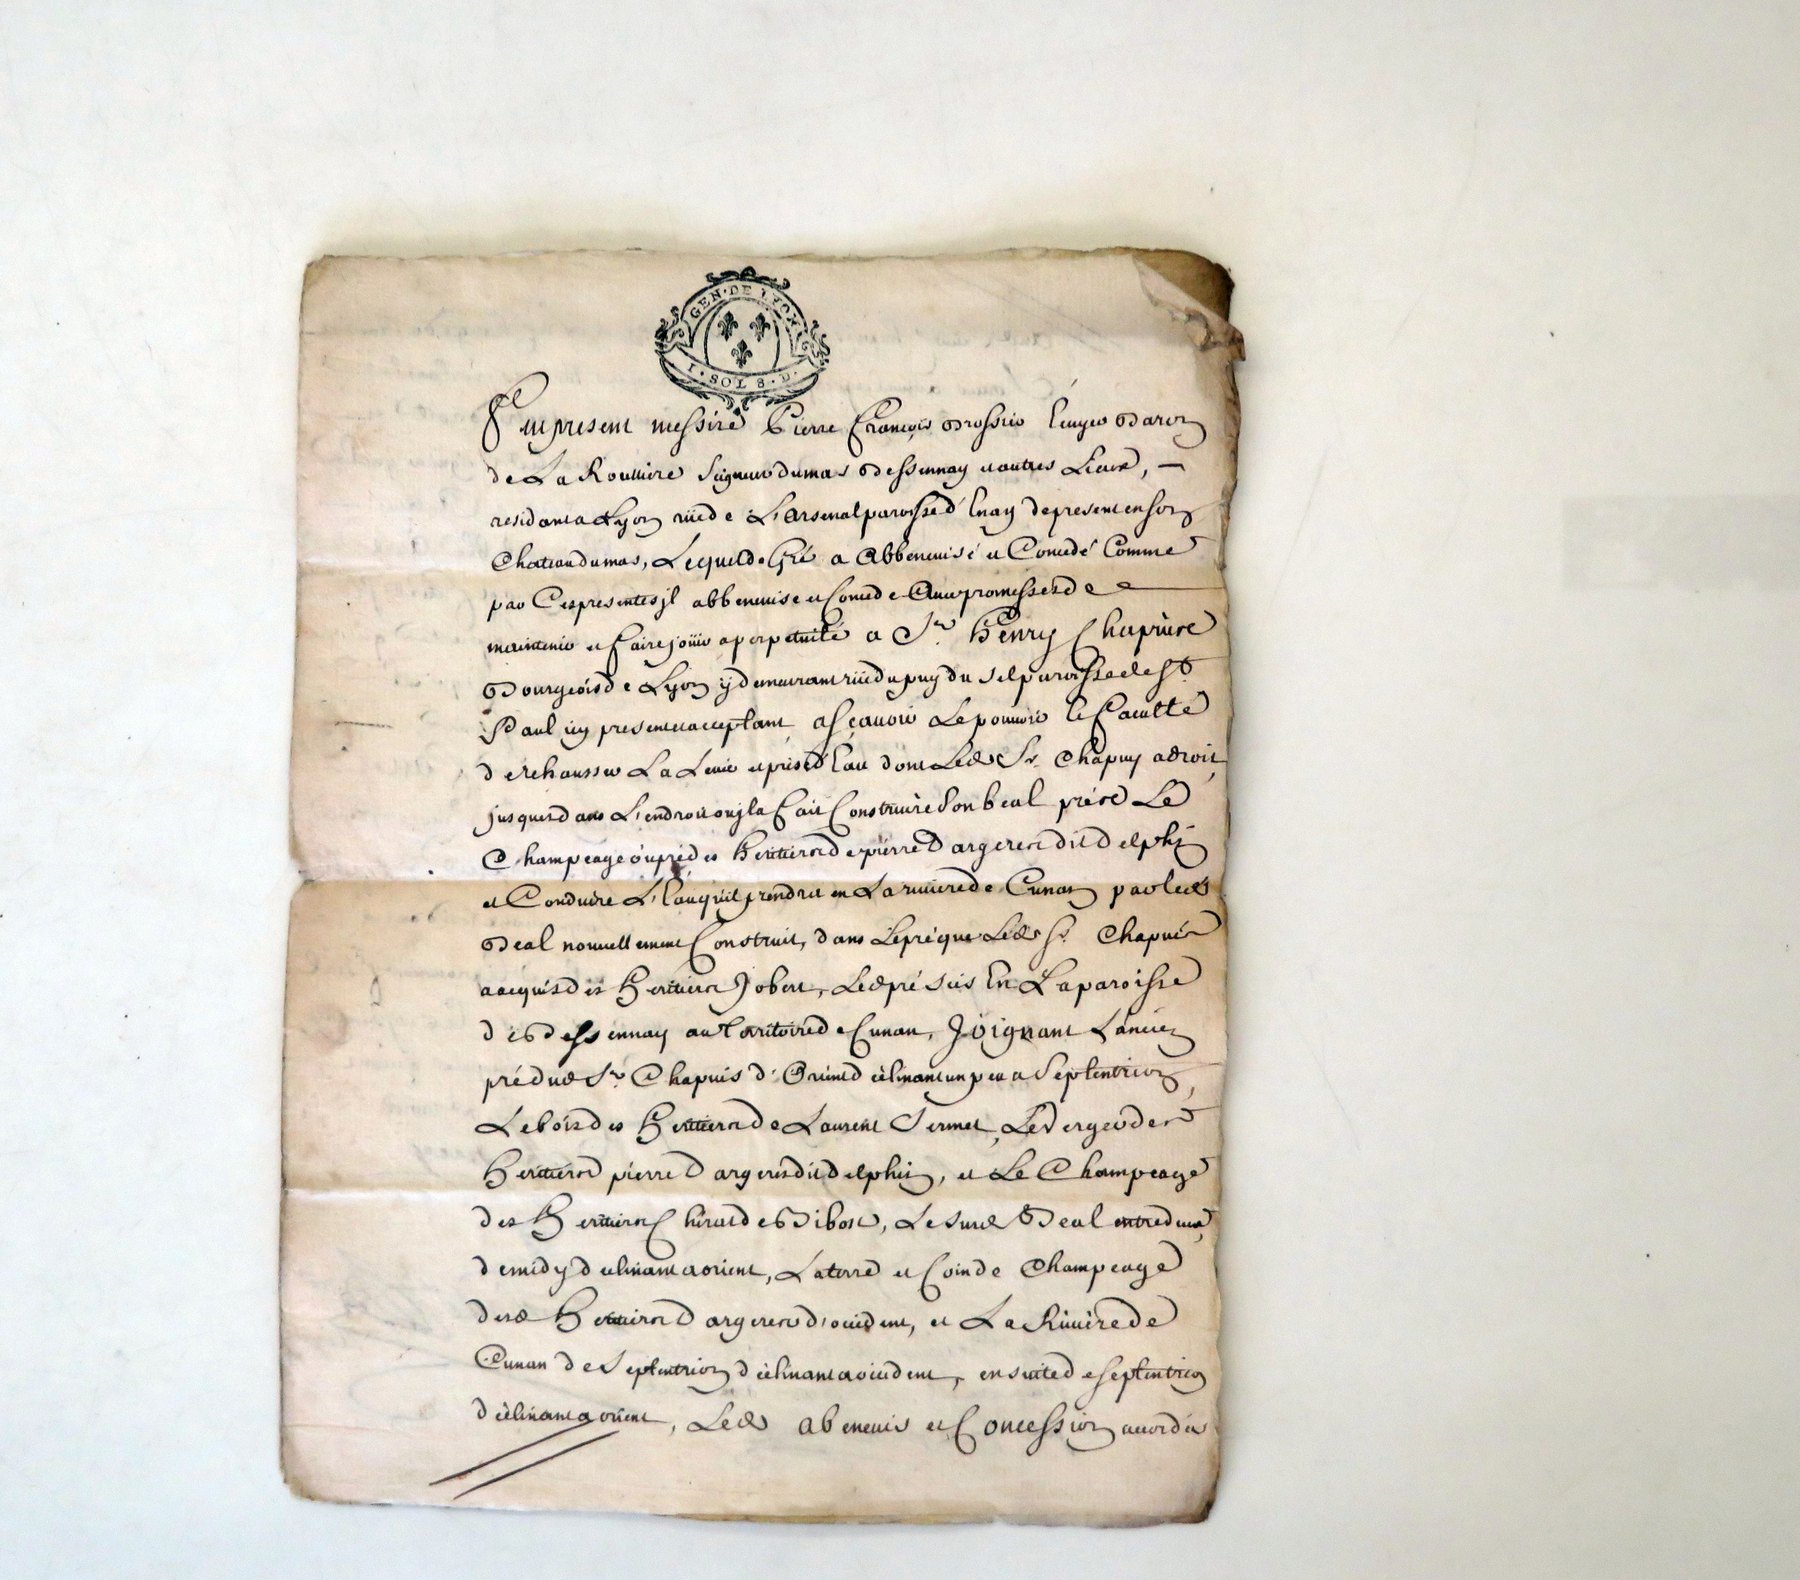 GEN · DE LYON
1 · SOL 8 · D ·
Fut present messire Pierre François Brossier Ecuyer Baron
de La Rouliere Seigneur dumas Bessennay et autres Lieux, —
residant a Lyon rüe de L'Arsenal paroisse d'Enay de present en son
Chateau dumas, Lequel de Gré a Abbenevisé et Concedé Comme
par Ces presentes jl abbenevise et Concede Avec promesses de
maintenir et faire joüir a perpetuité a Sr. Henry Chapuis
Bourgeois de Lyon ÿ demeurant rüe du puy du sel paroisse de St
Paul icy present et acceptant ascavoir Le pouvoir et faculté
de rehausser La Levée et prise d'Eau dont Led. Sr. Chapuy a droit
jusques dans L'endroit ou jl a fait Construire son beal prés Le
Champeage ou pré des Heritiers de pierre Dargeres dit delphin
et Conduire L'Eau qu'il prendra en La riviere de Cunan par led.
Beal nouvellement Construit, dans Le pré que Led. Sr. Chapuis
a acquis des Heritiers Jobert, Led. pré sis En La paroisse
de Bessennay au Territoire de Cunan, Joignant L'ancien
pré dud. Sr. Chapuis d'Orient déclinant un peu a Septentrion,
Le bois des Heritiers de Laurent Sermet, Le Verger des
Heritiers pierre Dargeres dit delphin, et Le Champeage
des Heritiers Chirat de Bibost, Le sud. Beal entre deux,
de midy declinant a orient, La terre et Coin de Champeage
desd. Heritiers Dargeres d'occident, et La Riviere de
Cunan de Septentrion déclinant a occident, en suite de septentrion
déclinant a orient, Led. abenevis et Concession accordés